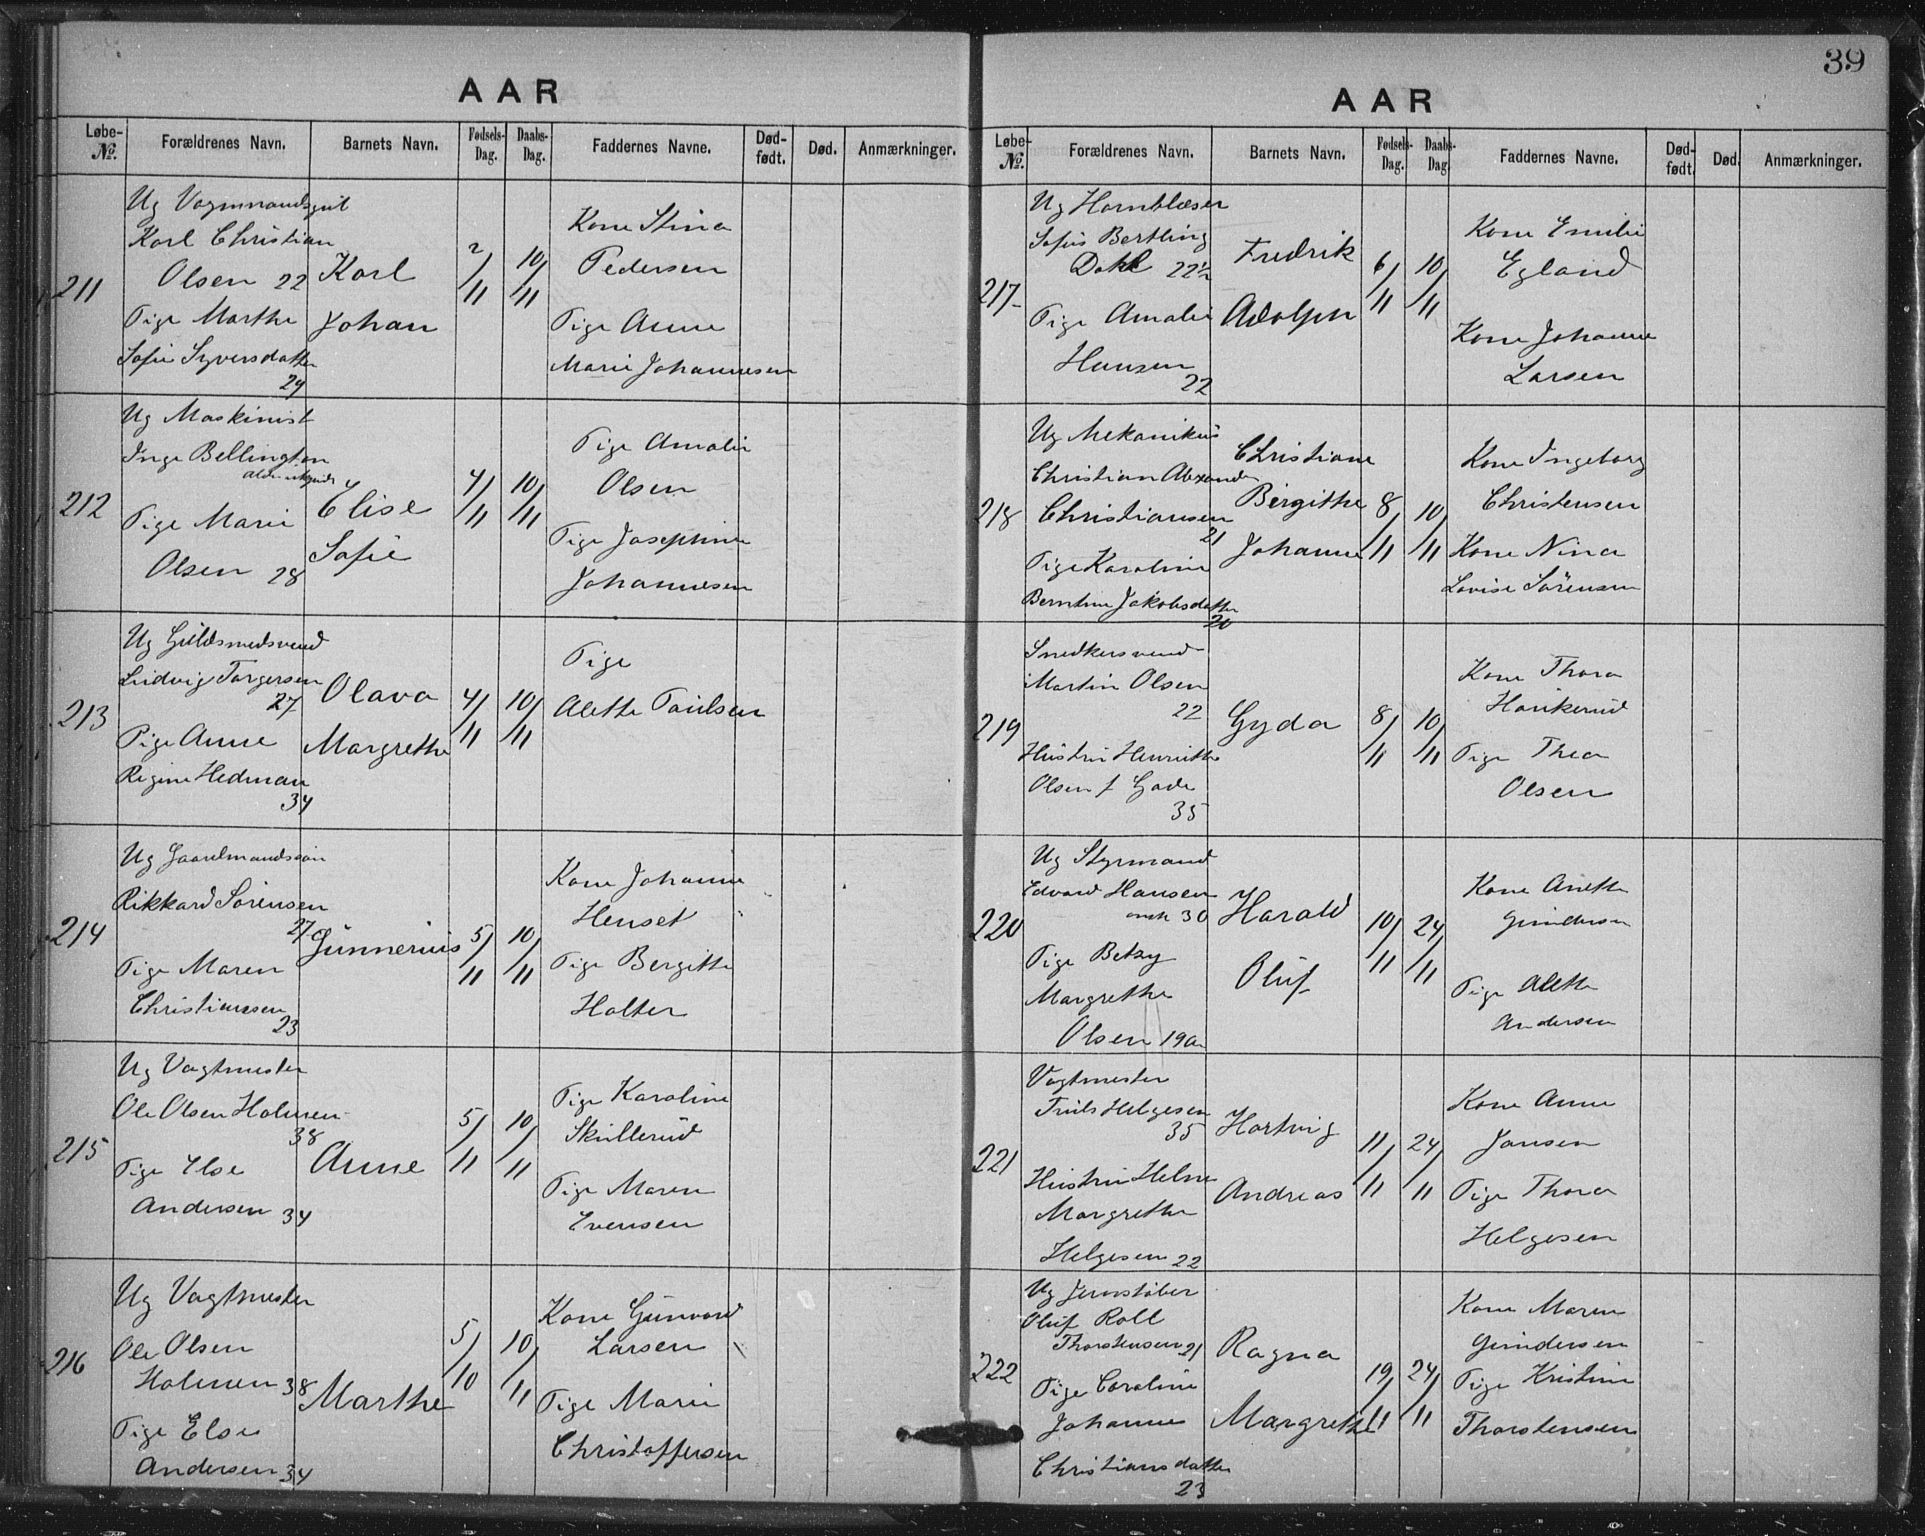 AAR
Løbe-№. Forældrenes Navn. Barnets Navn. Fødsels-Dag. Daabs-Dag. Faddernes Navne. Død-født. Død. Anmærkninger.
211
Ug Vognmandsgut
Karl Christian
Olsen 22
Pige Marthe
Sofie Syversdatter
29
Karl
Johan
2/11
10/11
Kone Stina
Pedersen
Pige Anne
Marie Johannesen
212
Ug Maskinist
Inge Bellington
Pige Marie
Olsen 28
Elise
Sofie
4/11
10/11
Pige Amalie
Olsen
Pige Josephine
Johannesen
213
Ug Guldsmedsvend
Ludvig Torgersen
27
Pige Anne
Regine Hedman
34
Olava
Margrethe
4/11
10/11
Pige
Alethe Paulsen
214
Ug Gaardmandssøn
Rikkard Sörensen
27
Pige Maren
Christianssen
23
Gunnerius
5/11
10/11
Kone Johanne
Henset
Pige Bergitte
Holter
215
Ug Vagtmester
Ole Olsen Holmen
38
Pige Else
Andersen 34
Anne
5/11
10/11
Pige Karoline
Skullerud
Pige Maren
Evensen
216
Ug Vagtmester
Ole Olsen
Holmen 38
Pige Else
Andersen 34
Marthe
5/10
10/11
Kone Gunvord
Larsen
Pige Marie
Christoffersen
39
AAR
Løbe-№. Forældrenes Navn. Barnets Navn. Fødsels-Dag. Daabs-Dag. Faddernes Navne. Død-født. Død. Anmærkninger.
217
Ug Hornblæser
Sofus Bertling
Dahl 22½
Pige Amalie
Hansen
22
Fredrik
Adolph
6/11
10/11
Kone Emilie
Egland
Kone Johanne
Larsen
218
Ug Mekanikus
Christian Alexander
Christiansen
21
Pige Karoline
Berntine Jakobsdatter
20
Christiane
Birgithe
Johanne
8/11
10/11
Kone Ingeborg
Christensen
Kone Nina
Lovise Sörensen
219
Snedkersvend
Martin Olsen
22
Hustru Henriette
Olsen f Gade
35
Gyda
8/11
10/11
Kone Thora
Haukerud
Pige Thea
Olsen
220
Ug Styrmand
Edvard Hansen
30
Pige Betzy
Margrethe
Olsen 19
Harald
Oluf
10/11
24/11
Kone Anette
Gundersen
Pige Alette
Andersen
221
Vagtmester
Truls Helgesen
35
Hustru Helene
Margrethe
Helgesen 22
Hartvig
Andreas
11/11
24/11
Kone Anne
Jansen
Pige Thora
Helgesen
222
Ug Jernstøber
Oluf Roll
Thorstensen 21
Pige Caroline
Johanne
Christiansdatter
23
Ragna
Margrethe
19/11
24/11
Kone Maren
Gundersen
Pige Kristine
Thorstensen